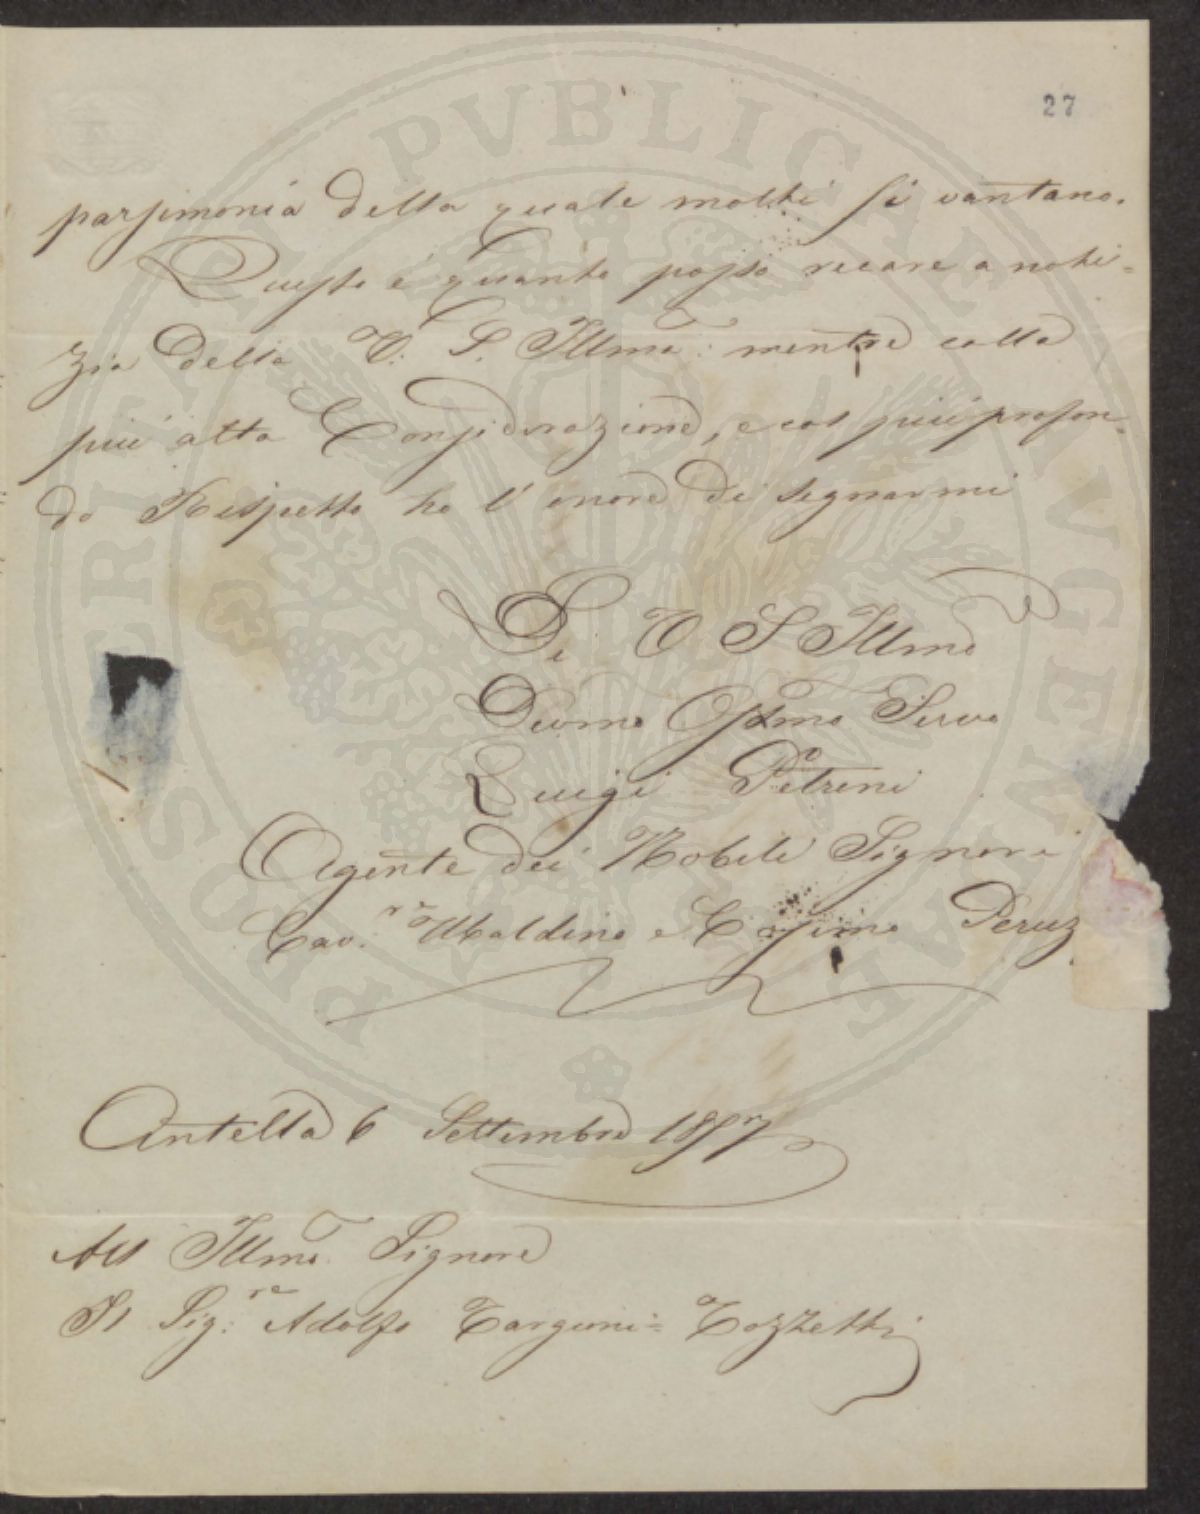 27
parsimonia della quale molti si vantano.
Questo è quanto posso recare a noti=
zia della V. S. Illma: mentre colla
più alta Considerazione, e col più profon=
do Rispetto ho l'onore di segnarmi
Di V S Illma
Devmo Obblmo Servo
Luigi Petreni
Agente dei Nobili Signori
Cav.re Ubaldino e Cosimo Peruz
Antella 6 Settembre 1857
All Illmo. Signore
Il Sig:re Adolfo Targioni=Tozzetti
PROSPERITATI PVBLICAE AVGENDAE